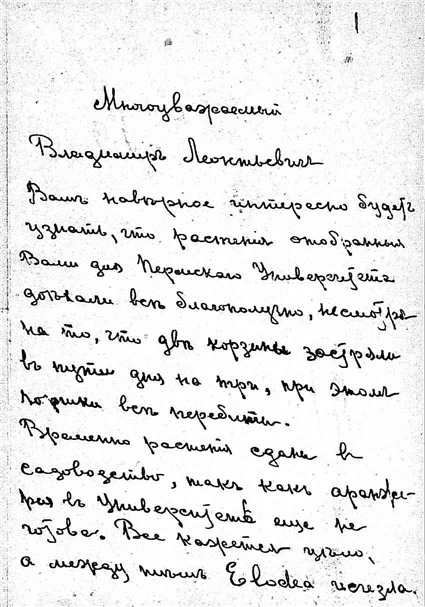 1
Многоуважаемый
Владимиръ Леонтьевичъ
Вамъ навѣрное интересно будетъ
узнать, что растенія отобранныя
Вами для Пермскаго Университета
доѣхали всѣ благополучно, несмотря
на то, что двѣ корзины застряли
въ пути дня на три, при этомъ
всѣ перебиты.
Временно растенія сданы въ
садоводство, такъ какъ оранже-
рея въ Университетѣ еще не
готова. Все кажется цѣло,
а между тѣмъ Elodea исчезла.